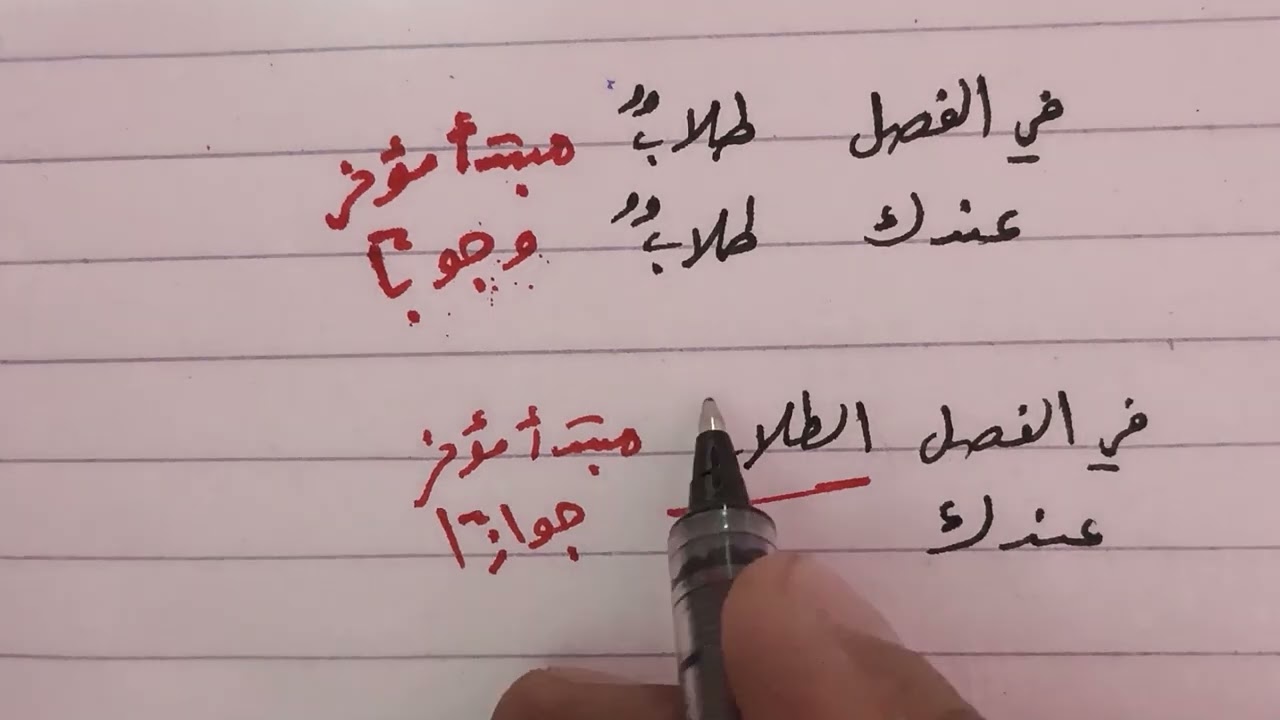 في الفصل طلابٌ مبتدأ مؤخر
عندك طلابٌ وجوبًا
في الفصل الطلا مبتدأ مؤخر
عندك جوازًا